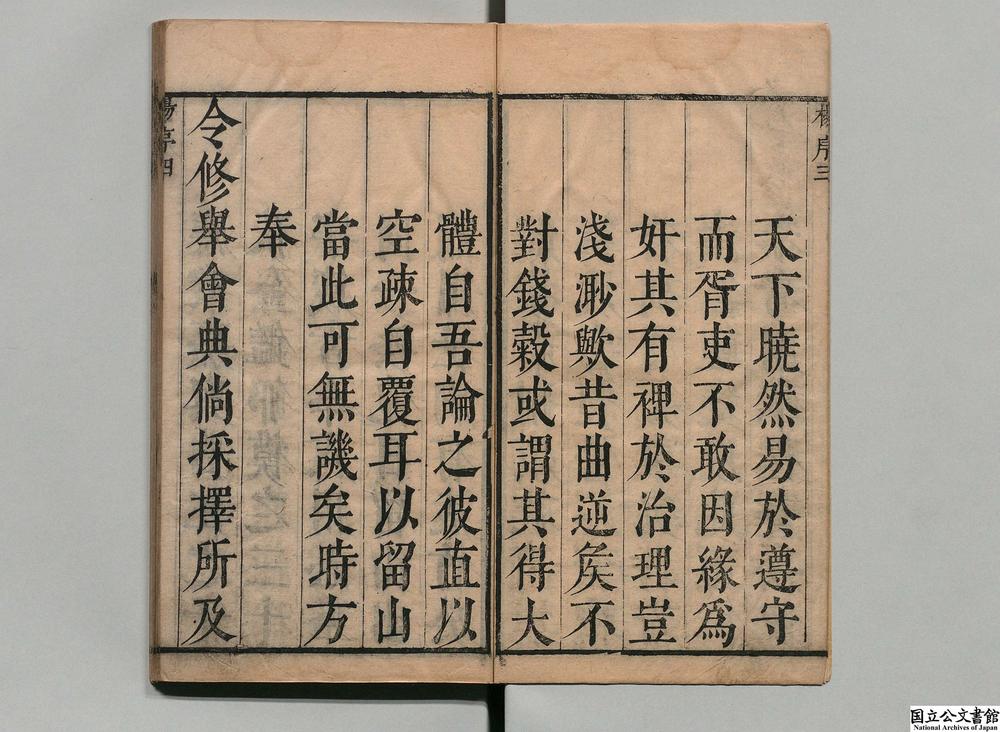 楊序三
天下曉然易於遵守
而胥吏不敢因緣爲
奸其有裨於治理豈
淺渺歟昔曲逆矦不
對錢穀或謂其得大
體自吾論之彼直以
空疎自覆耳以留山
當此可無譏矣時方
奉
令修舉會典倘採擇所及
楊序四
国立公文書館
National Archives of Japan